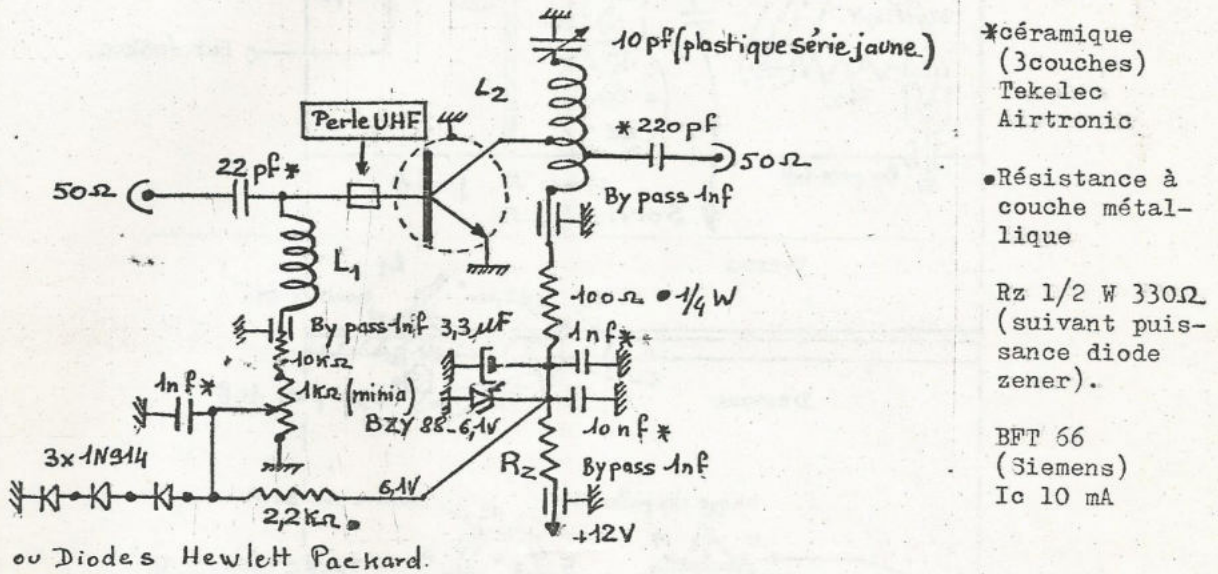 10 pf (plastique série jaune)
L2
Perle UHF
* 220 pf
22 pf *
50Ω
50Ω
By pass 1nf
L1
100Ω • 1/4 W
By pass 1nf
3,3 µF
1 nf *
10KΩ
1nf *
1KΩ (minia)
BZY 88-6,1V
10 nf *
3x 1N914
RZ
By pass 1nf
6,1V
2,2KΩ •
+12V
ou Diodes Hewlett Packard.
*céramique
(3couches)
Tekelec
Airtronic
•Résistance à
couche métal-
lique
Rz 1/2 W 330Ω
(suivant puis-
sance diode
zener).
BFT 66
(Siemens)
Ic 10 mA